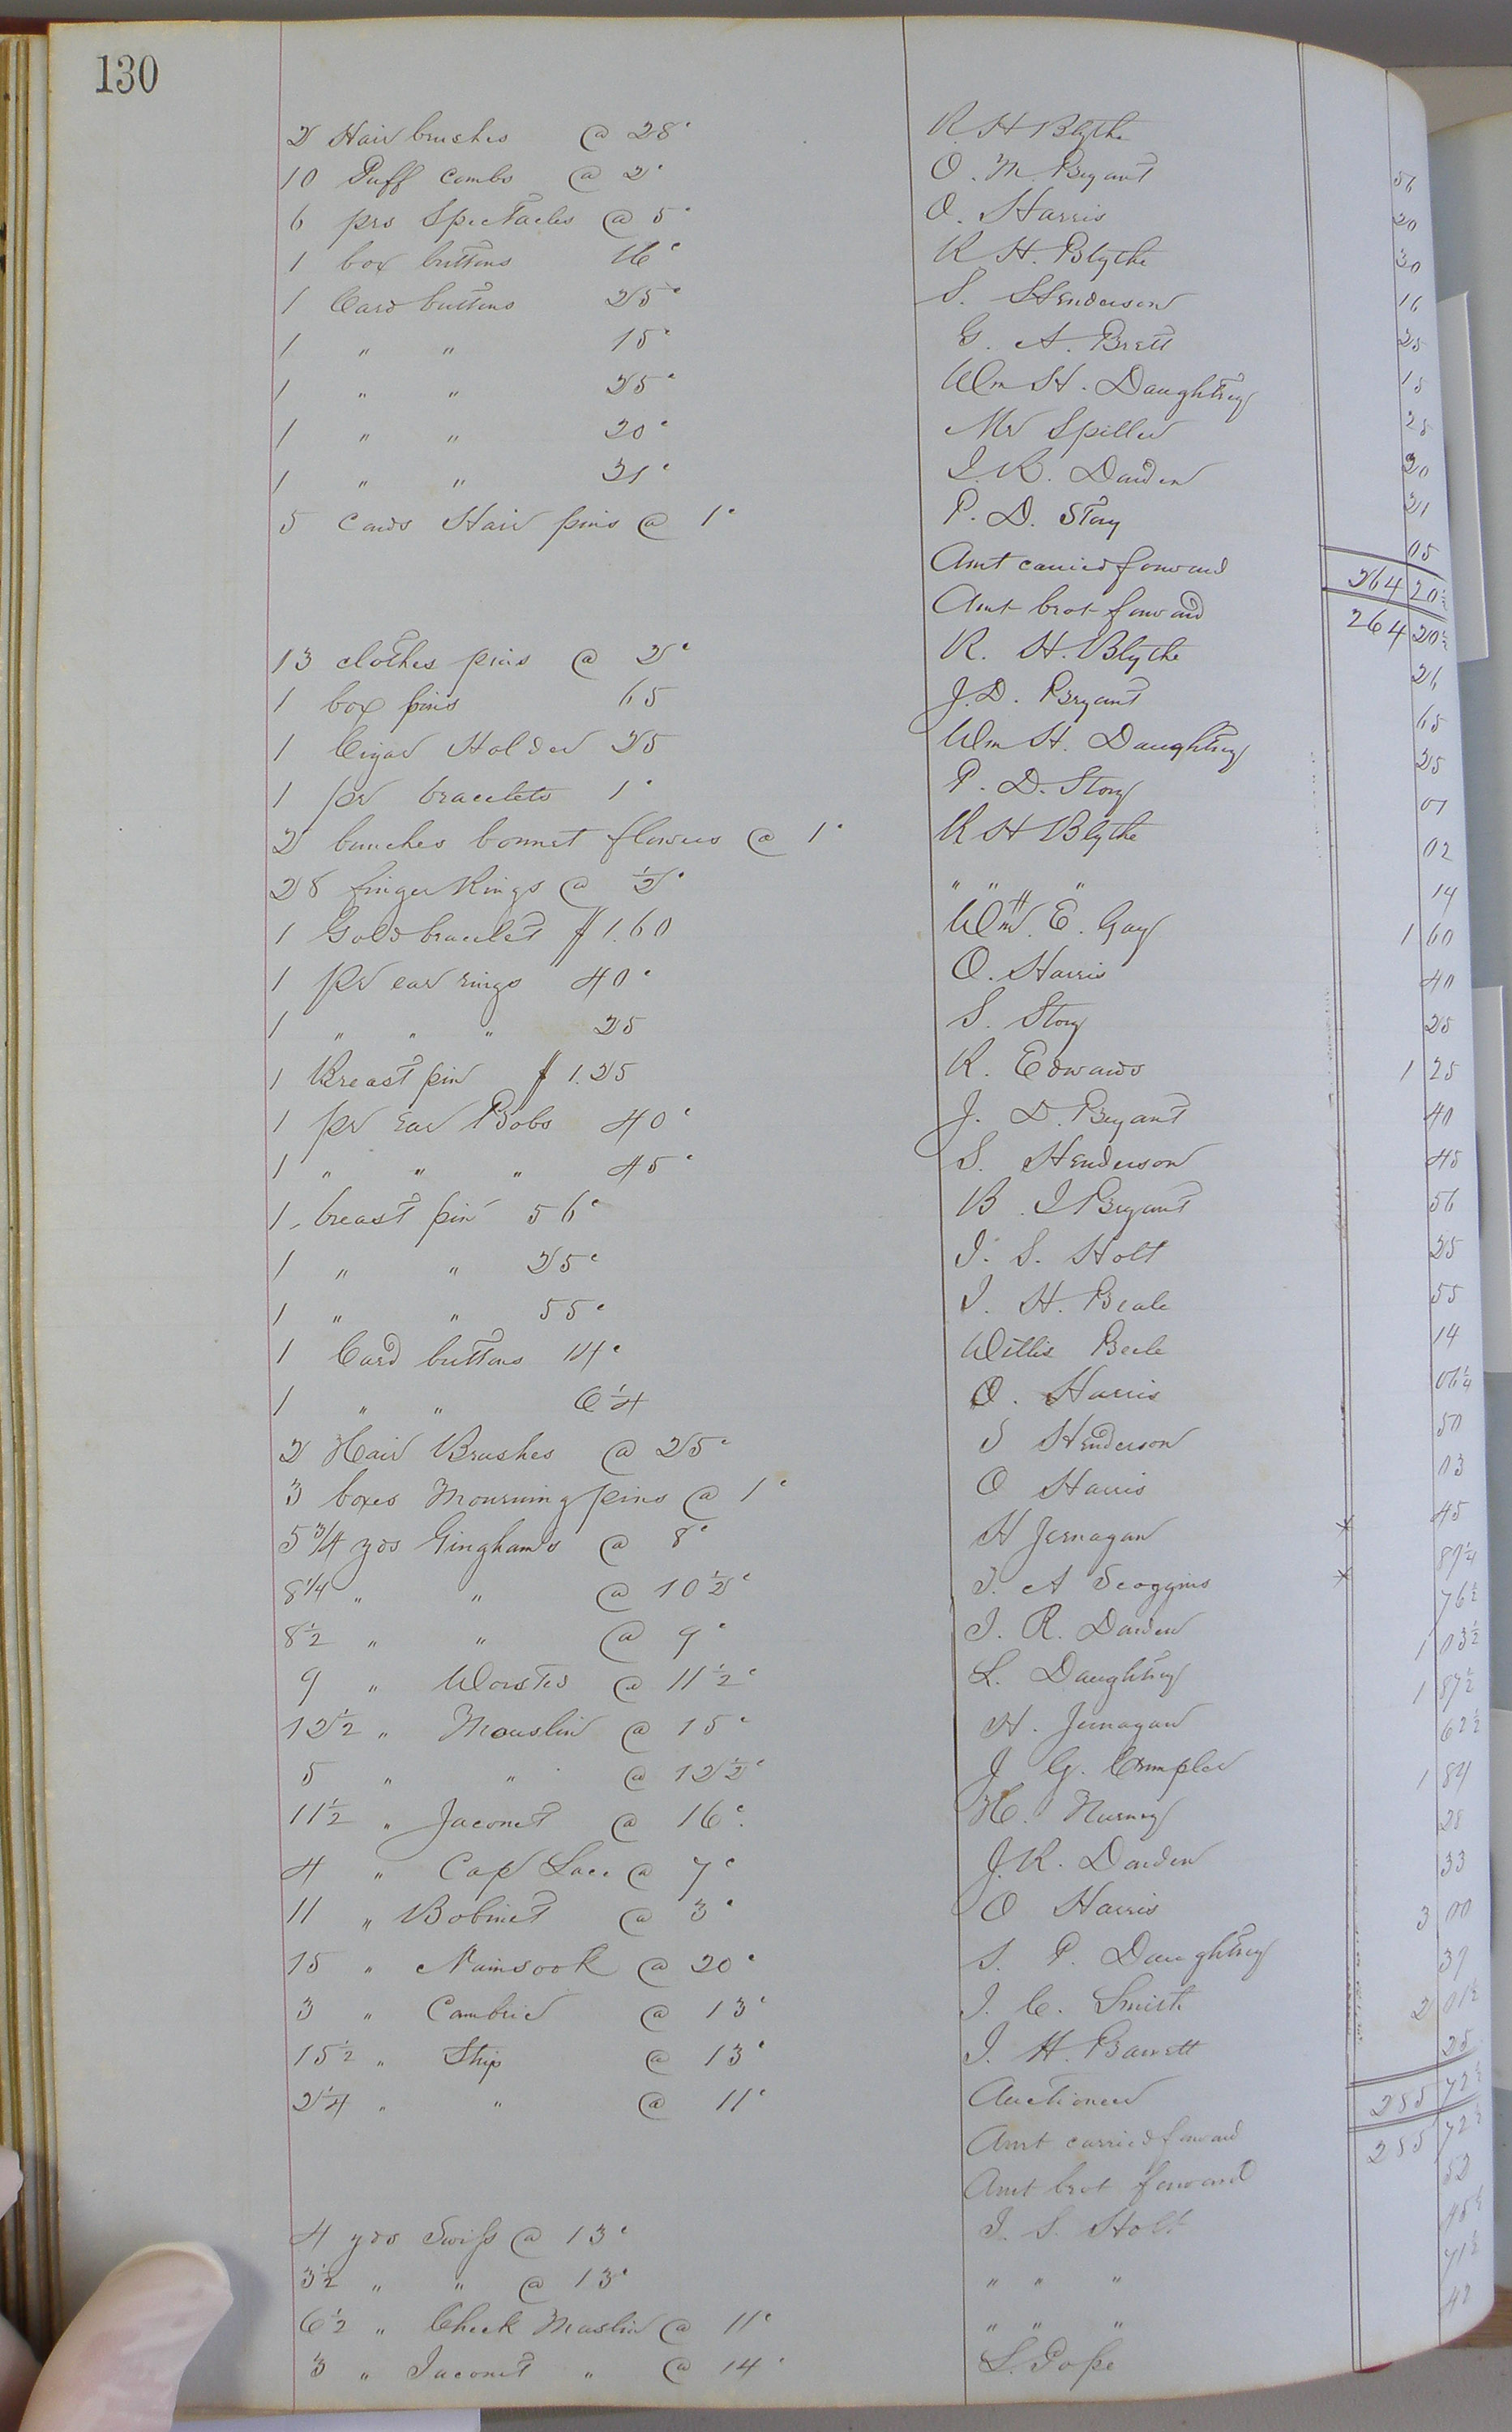 130
2 Hair brushes @ 28c R. H Blythe 56
10 Puff combs @ 2c O. M. Bryant 20
6 prs Spectacles @ 5c O. Harris 30
1 box buttons 16c R H. Blythe 16
1 Card buttons 25c S. Henderson 25
1 " " 15c G. A. Brett 15
1 " " 25c Wm H. Daughtrey 25
1 " " 20c Mr Spiller 20
1 " " 21c J. R. Darden 21
5 cards Hair pins @ 1c P. D. Story 05
Amt carried forward 264 20½
Amt brot forward 264 20½
13 clothes pins @ 2c R. H. Blythe 26
1 box pins 65 J. D. Bryant 65
1 Cigar Holder 25 Wm H. Daughtrey 25
1 pr bracelets 1c P. D. Story 01
2 bunches bonnet flowers @ 1c R H Blythe 02
28 finger Rings @ ½c " " " 14
1 Gold bracelet $1.60 Wm. E. Gay 1 60
1 pr ear rings 40c O. Harris 40
1 " " " 25 S. Story 25
1 Breast pin $1.25 R. Edwards 1 25
1 pr Ear Bobs 40c J. D. Bryant 40
1 " " " 45c S. Henderson 45
1 breast pin 56c B. J Bryant 56
1 " " 25c J. S. Holt 25
1 " " 55c J. H. Beale 55
1 Card buttons 14c Willis Beele 14
1 " " 6¼ O. Harris 06¼
2 Hair Brushes @ 25c S Henderson 50
3 boxes Mourning pins @ 1c O Harris 03
5 3/4 yds Ginghams @ 8c H Jernagan 45
8 1/4 " " @ 10½c J. A Scoggins 87¼
8½ " " @ 9c J. R. Darden 76½
9 " Worsted @ 11½c L. Daughtrey 1 03½
12½ " Mouslin @ 15c H. Jernagan 1 87½
5 " " @ 12½c J G. Crumpler 62½
11½ " Jaconet @ 16c H. Nurney 1 84
4 " Cap Lace @ 7c J. R. Darden 28
11 " Bobinet @ 3c O Harris 33
15 " Nainsook @ 20c S. P. Daughtrey 3 00
3 " Cambric @ 13c J. C. Smith 39
15½ " Strip @ 13c J. H. Barrett 2 01½
2¼ " " @ 11c Auctioneer 25
Amt carried forward 285 72½
Amt brot forward 285 72½
4 yds Swiss @ 13c J. S. Holt 52
3½ " " @ 13c " " " 45½
6½ " Check Muslin @ 11c " " " 71½
3 " Jaconet " @ 14c L. Pope 42